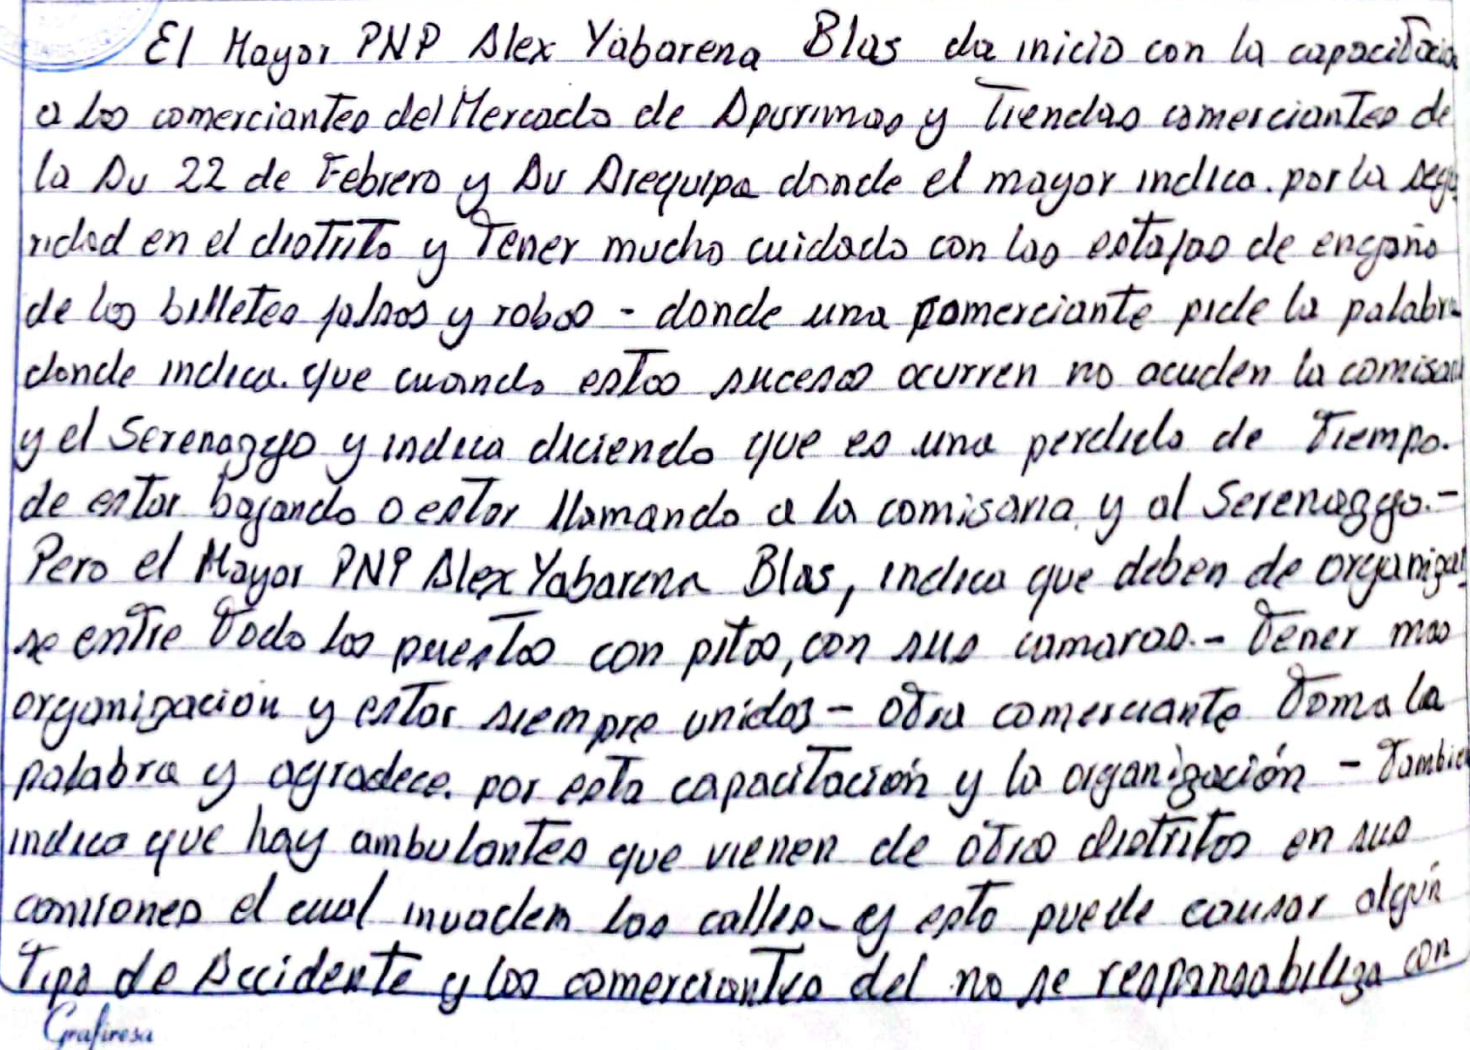 El Mayor PNP Alex Yabarena Blas da inicio con la capacitació
a los comerciantes del Mercado de Apurimas y Tiendas comerciantes de
la Av 22 de Febrero y Av Arequipa donde el mayor indica. por la segu
ridad en el distrito y Tener mucho cuidado con las estafas de engaño
de los billetes falsos y robos - donde una comerciante pide la palabra
donde indica. que cuando estos sucesos ocurren no acuden la comisari
y el Serenazgo y indica diciendo que es una perdida de Tiempo.
de estar bajando o estar llamando a la comisaria y al Serenazgo.-
Pero el Mayor PNP Alex Yabarena Blas, indica que deben de organizar
se entre Todo los puestos con pitos, con sus camaras.- Tener mas
organización y estar siempre unidos - otra comerciante Toma la
palabra y agradece. por esta capacitación y la organización - Tambie
indica que hay ambulantes que vienen de otros distritos en sus
camiones el cual invaden las calles - y esto puede causar algún
Tipo de Accidente y los comerciantes del no se responsabiliza con
Grafiresa